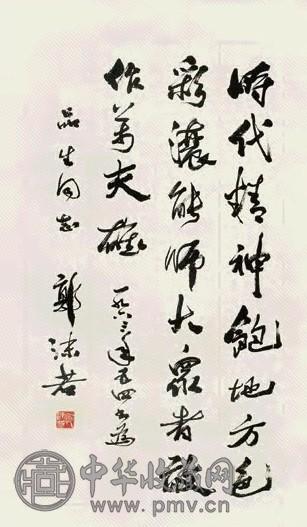 時代精神飽地方色
彩濃能师大眾者敢
作萬夫雄 一九六三年五四书為
品生同志 郭沫若
中华收藏网
www.pmv.cn